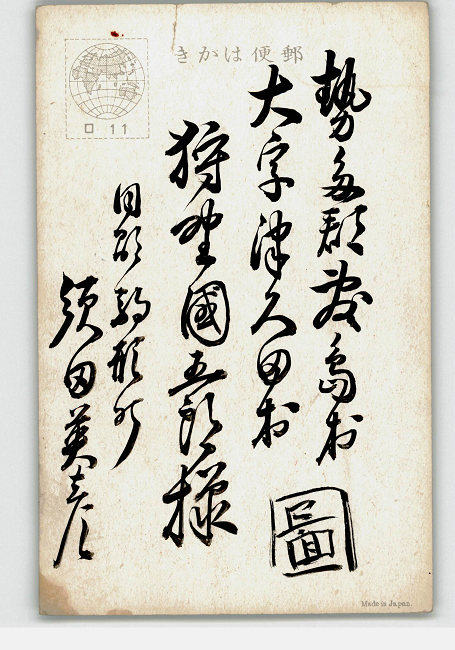 郵便はかき
口 11
勢多郡敷島村
大字津久田村
狩野國五郎様
圖
同郡駒形町
須田
Made in Japan.